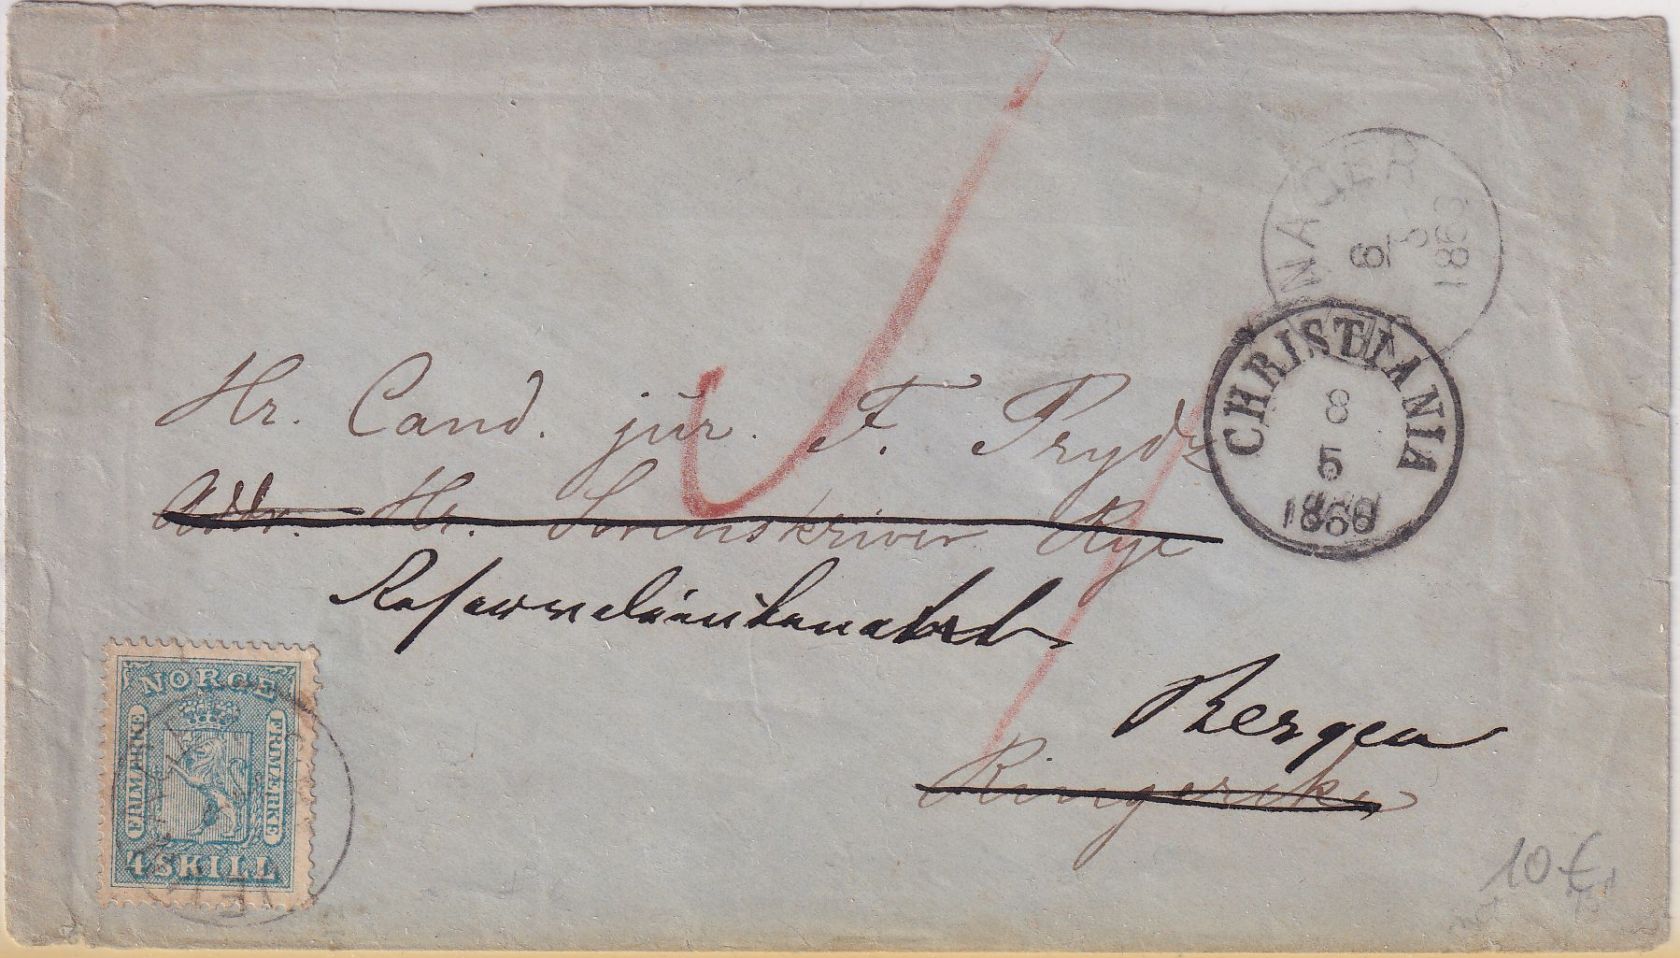 NAGER
6
5
1869
CHRISTIANIA
8
5
186
Hr. Cand. jur. F. Prydz
Adr. Hr. Sorenskriver Rye
Bergen
Ringerike
NORGE
FRIMÆRKE
FRIMÆRKE
4 SKILL
10 €